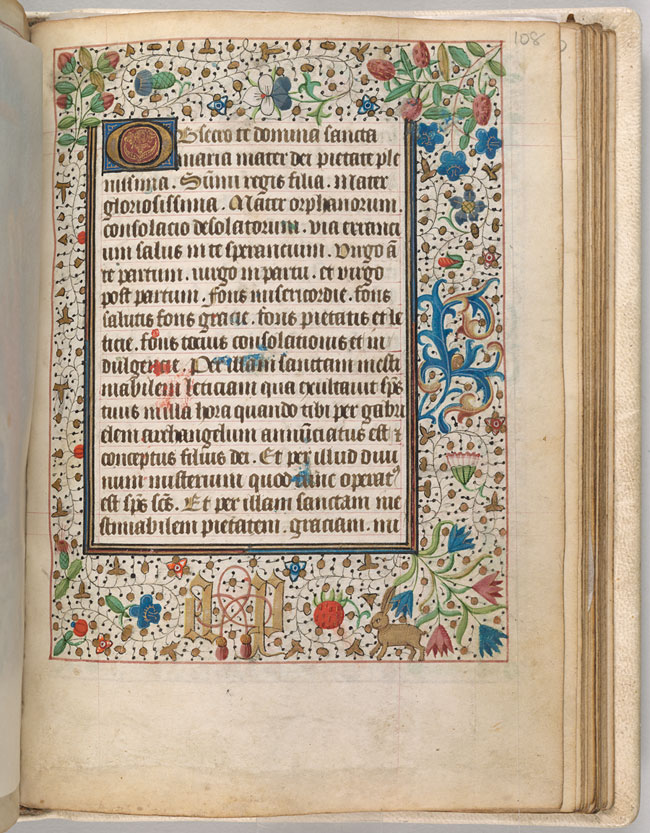 108
Obsecro te domina sancta
maria mater dei pietate ple
nissima. Sūmi regis filia. Mater
gloriosissima. Mater orphanorum.
consolacio desolatorum. via erranci
um salus in te sperancium. Virgo ā
te partum. uirgo in partu. et virgo
post partum. fons misericordie. fons
salutis fons gracie. fons pietatis et le
ticie. fons tocius consolationis et in
dulgencie. Per illam sanctam inesti
mabilem leticiam qua exultauit sp̄s
tuus in illa hora quando tibi per gabri
elem archangelum annūciatus est ⁊
conceptus filius dei. Et per illud diui
num misterium quod tunc operatꝰ
est sp̄s sc̄s. Et per illam sanctam ine
stimabilem pietatem. graciam. mi